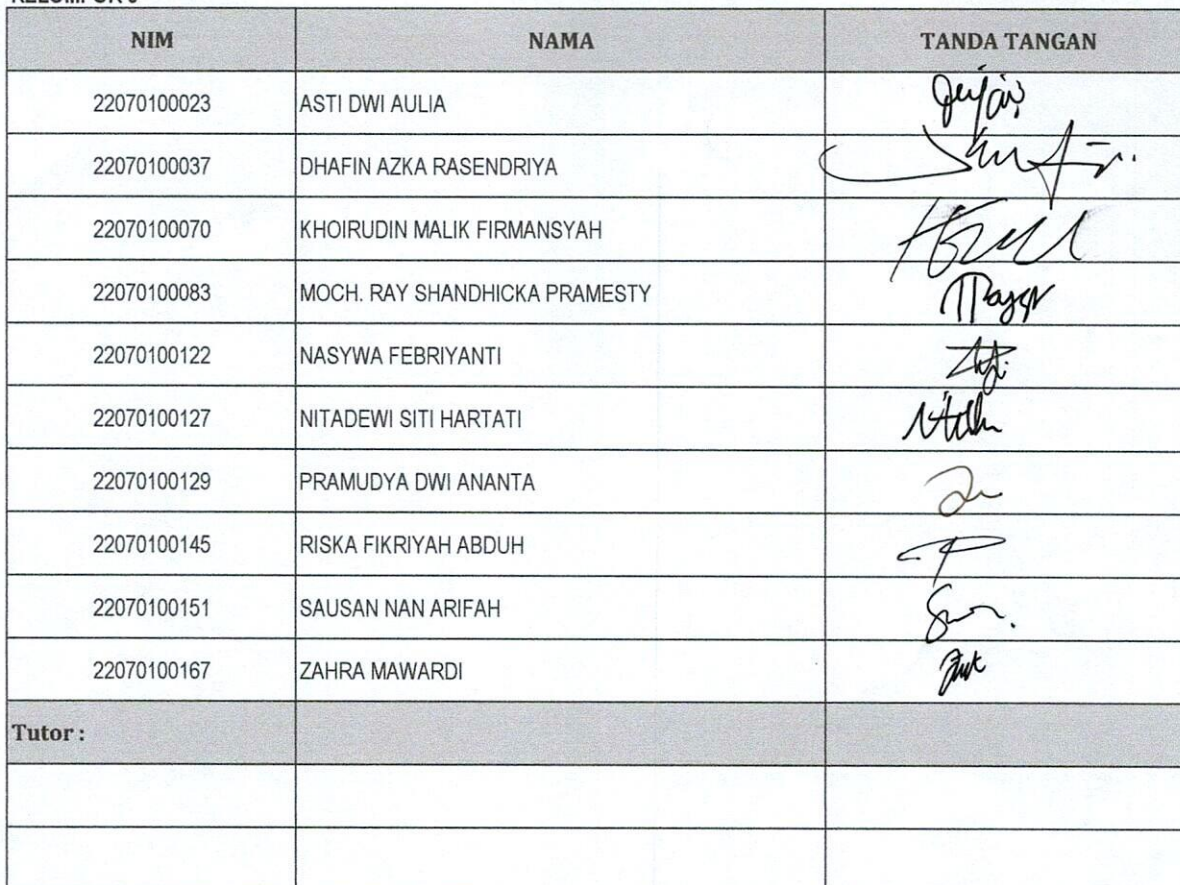 NIM NAMA TANDA TANGAN
22070100023 ASTI DWI AULIA
22070100037 DHAFIN AZKA RASENDRIYA
22070100070 KHOIRUDIN MALIK FIRMANSYAH
22070100083 MOCH. RAY SHANDHICKA PRAMESTY
22070100122 NASYWA FEBRIYANTI
22070100127 NITADEWI SITI HARTATI
22070100129 PRAMUDYA DWI ANANTA
22070100145 RISKA FIKRIYAH ABDUH
22070100151 SAUSAN NAN ARIFAH
22070100167 ZAHRA MAWARDI
Tutor :